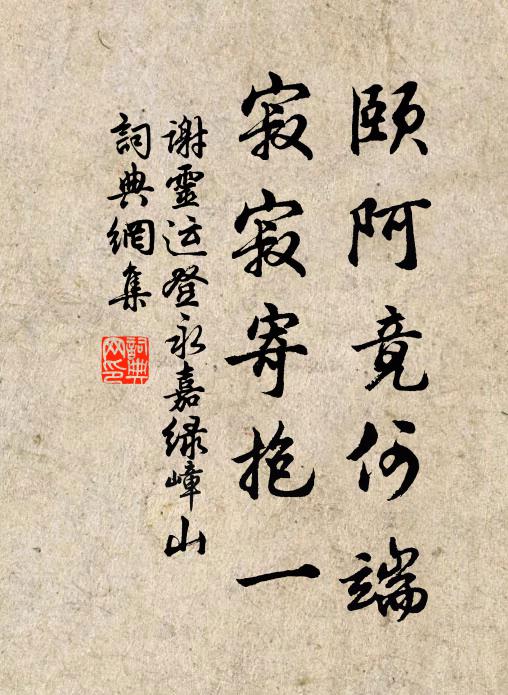 頤阿竟何端
寂寂寄抱一
謝靈运登永嘉緑嶂山
詞典網集
詞典網印